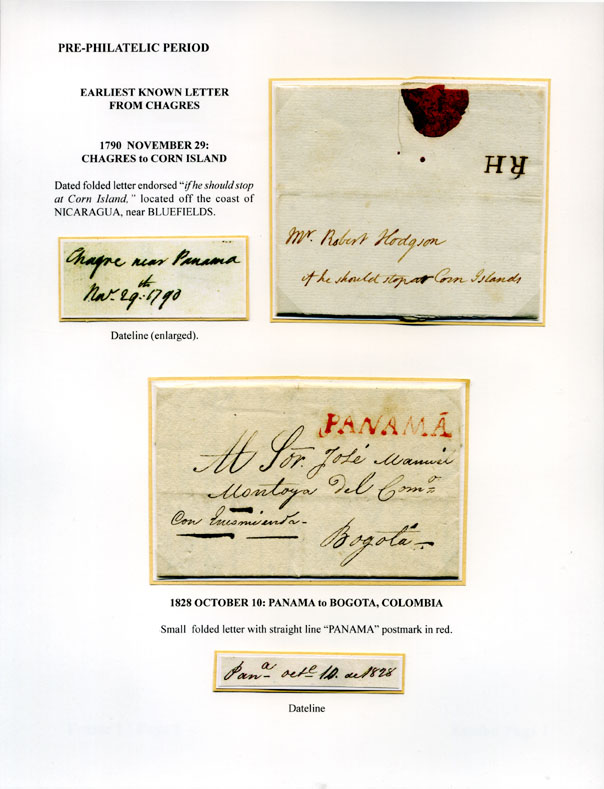 PRE-PHILATELIC PERIOD
EARLIEST KNOWN LETTER
FROM CHAGRES
1790 NOVEMBER 29:
CHAGRES to CORN ISLAND
Dated folded letter endorsed “if he should stop
at Corn Island,” located off the coast of
NICARAGUA, near BLUEFIELDS.
Chagre near Panama
Nov. 29th 1790
Dateline (enlarged).
RH
Mr. Robert Hodgson
if he should stop at Corn Islands
PANAMÁ
Al Sor. José Manuel
Montoya del Como
Con
Bogotá
1828 OCTOBER 10: PANAMA to BOGOTA, COLOMBIA
Small folded letter with straight line “PANAMA” postmark in red.
Pana octe 10. de 1828
Dateline